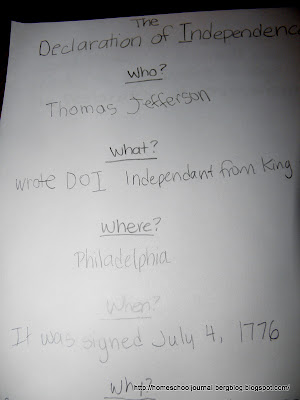 The
Declaration of Independenc
Who?
Thomas Jefferson
What?
wrote DOI Independant from King
Where?
Philadelphia
When?
It was signed July 4, 1776
Why?
http://homeschooljournal-bergblog.blogspot.com/